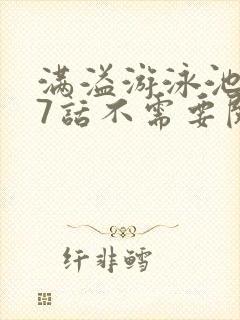 满溢游泳池
7話不需要
纤非鳕